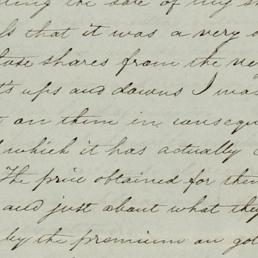 the sale of my sh
ls that it was a very
those shares from the ve
ts ups and downs I was
t on them in consequ
d which it has actually
The price obtained for them
and just about what they
by the premium on gol